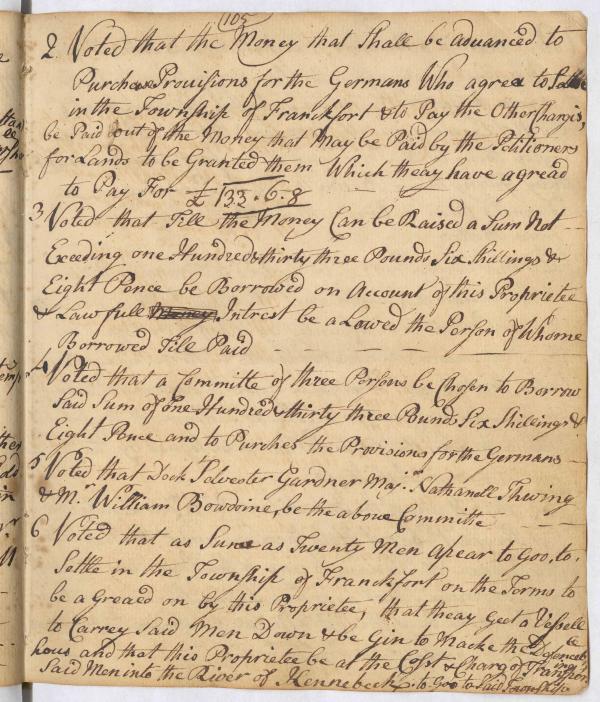 105
2 Voted that the Money that Shall be advanced to
Purchase Provisions for the Germans Who agree to Settle
in the Township of Franckfort & to Pay the Other Charges,
be Paid out of the Money that May be Paid by the Petitioners
for Lands to be Granted them Which theay have agread
to Pay For £133.6.8
3 Voted that Till the Money Can be Raised a Sum Not
Exceding one Hundred & thirty three Pounds Six Shillings &
Eight Pence be Borrowed on Account of this Proprietee
& Lawfull Money Intrest be a Lowed the Person of Whome
Borrowed Till Paid
4 Voted that a Committe of three Persons be Chosen to Borrow
Said Sum of One Hundred & thirty three Pounds Six Shillings &
Eight Pence and to Purches the Provisions for the Germans
5 Voted that Dockr Silvester Gardner Majr Nathanell Thwing
& Mr William Bowdoine, be the above Committe
6 Voted that as Sune as Twenty Men apear to Goo, to
Settle in the Township of Franckfort on the Terms to
be a Greaed on by this Proprietee, that theay Geet a Vessell
to Carrey Said Men Down & be Gin to Macke the Defencebe
hous and that this Proprietee be at the Cost & Charg of Transporting
Said Men into the River of Kennebeck to Goo to Said Township